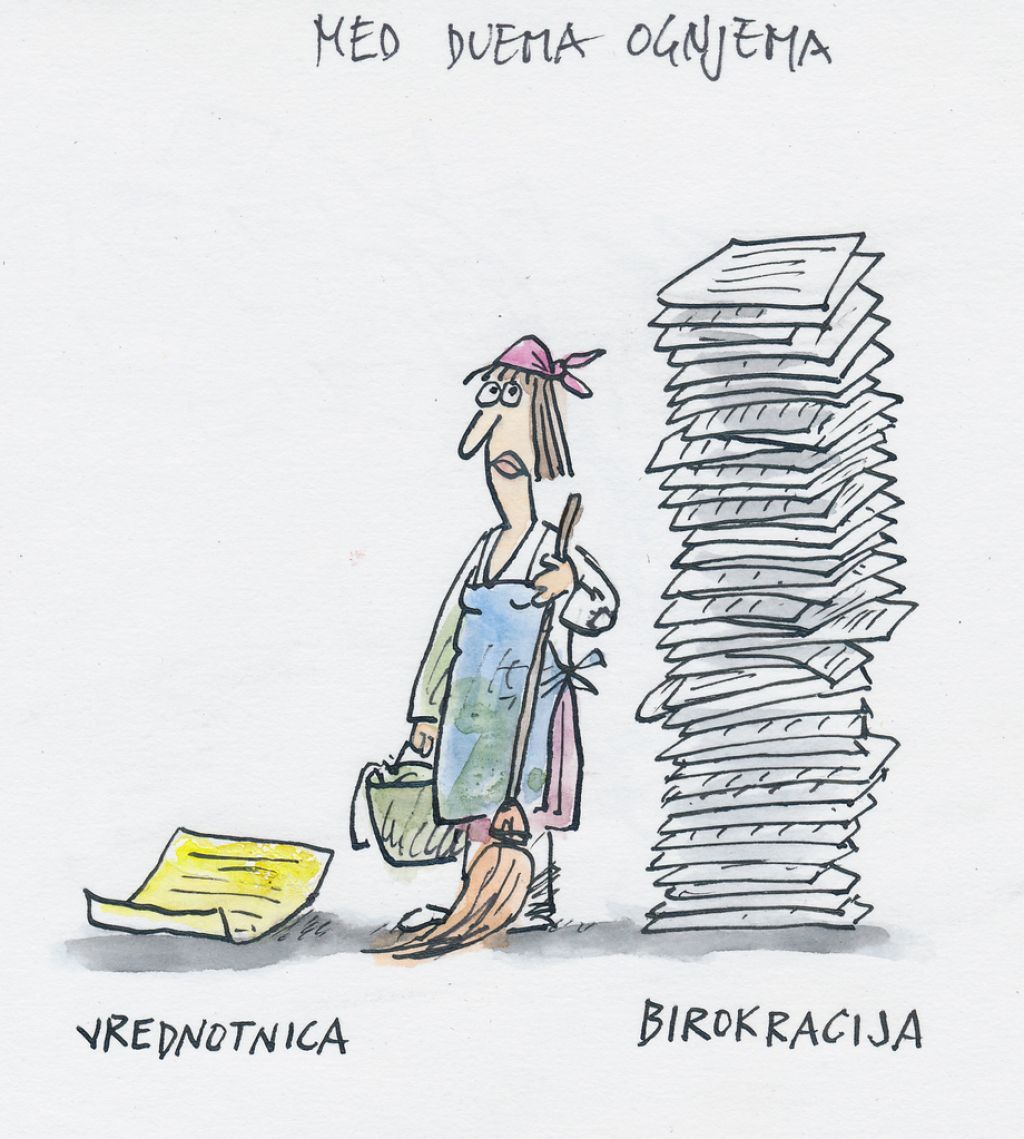 MED DVEMA OGNJEMA
VREDNOTNICA
BIROKRACIJA